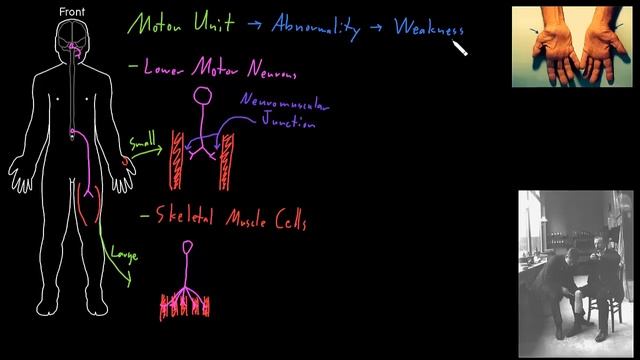 Front
Motor Unit → Abnormality → Weakness
- Lower Motor Neurons
Neuromuscular
Junction
Small
- Skeletal Muscle Cells
Large